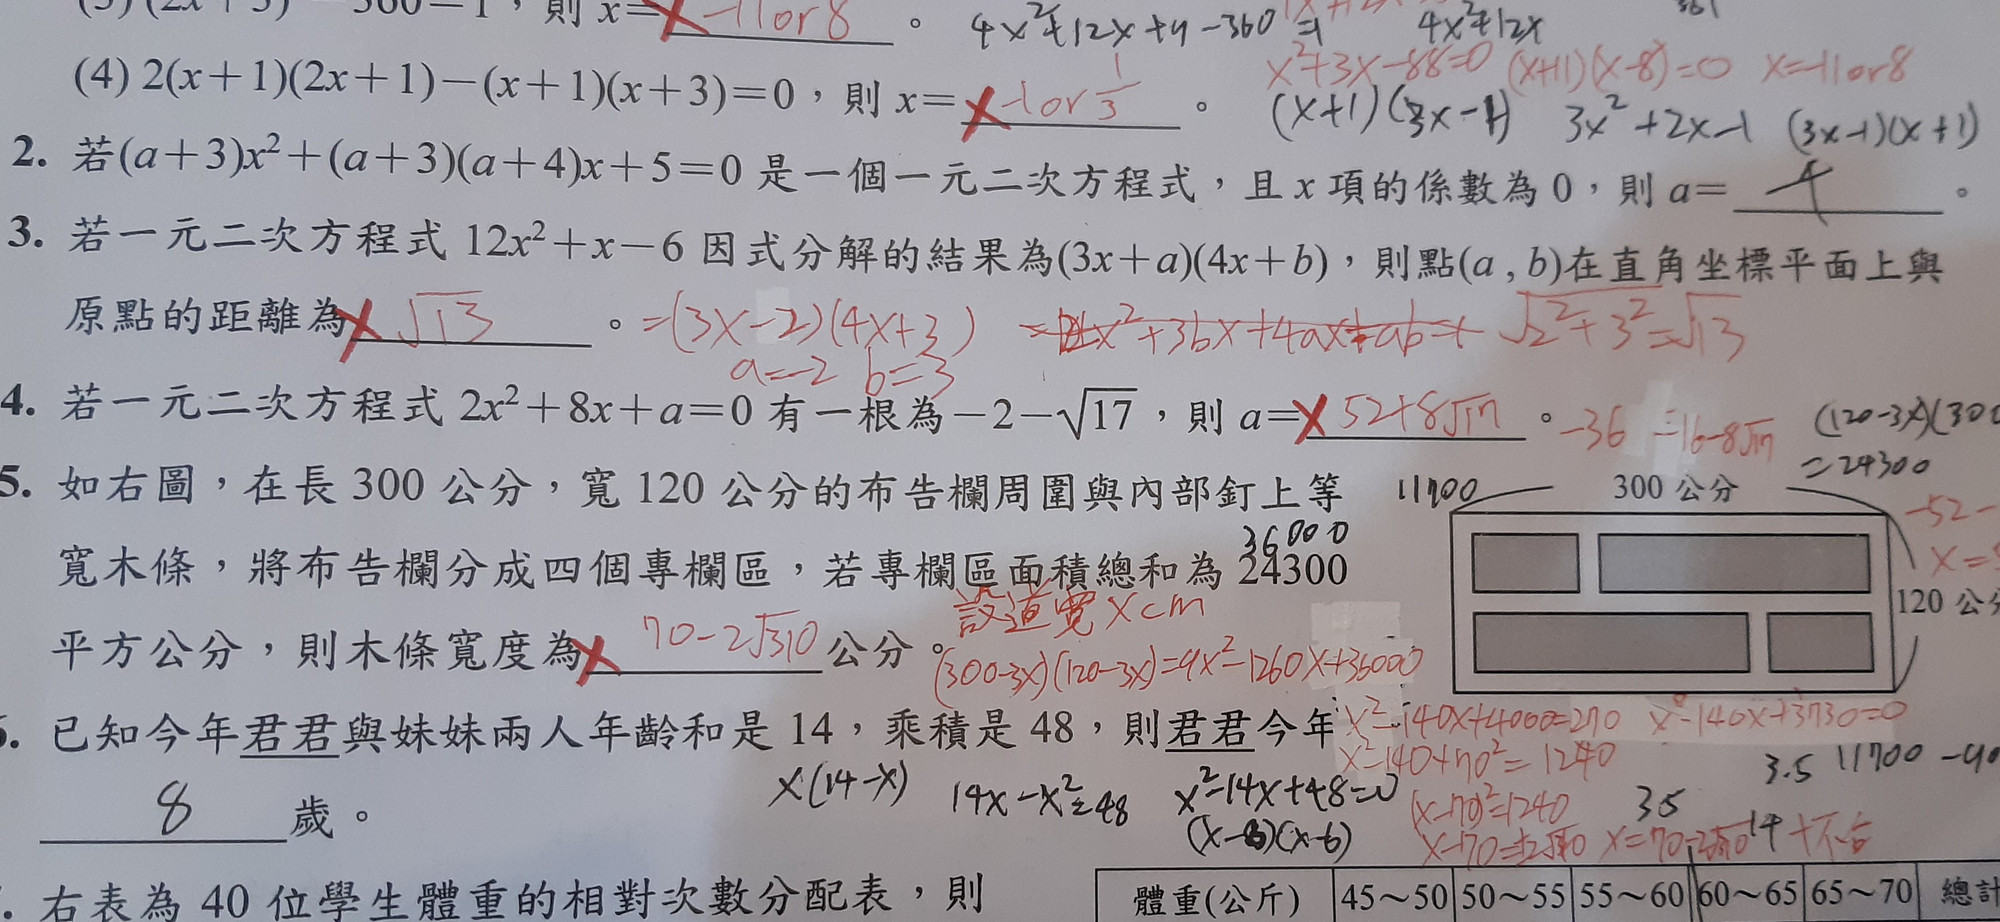 則 x= -11or8 。 4x²+12x+9-360=1 4x²+12x
(4) 2(x+1)(2x+1)-(x+1)(x+3)=0，則 x= -1or 1/3 。 x²+3x-88=0 (x+11)(x-8)=0 x=-11or8
(x+1)(3x-1) 3x²+2x-1 (3x-1)(x+1)
2. 若(a+3)x²+(a+3)(a+4)x+5=0 是一個一元二次方程式，且 x 項的係數為 0，則 a= 。
3. 若一元二次方程式 12x²+x-6 因式分解的結果為(3x+a)(4x+b)，則點(a , b)在直角坐標平面上與
原點的距離為 √13 。 =(3x-2)(4x+3) √2²+3²=√13
a=-2 b=3
4. 若一元二次方程式 2x²+8x+a=0 有一根為-2-√17，則 a= 52+8√17 。 -36 =16-8√17
(120-3x)(300
=24300
5. 如右圖，在長 300 公分，寬 120 公分的布告欄周圍與內部釘上等
11700 300 公分
36000
寬木條，將布告欄分成四個專欄區，若專欄區面積總和為 24300
-52-
x=
120 公分
設道寬xcm
平方公分，則木條寬度為 70-2√310 公分。
(300-3x)(120-3x)=9x²-1260x+36000
6. 已知今年君君與妹妹兩人年齡和是 14，乘積是 48，則君君今年
x²-140x+4000=270 x²-140x+3730=0
x²-140+70²=1240
x(14-x) 14x-x²=48 x²-14x+48=0
(x-8)(x-6)
8 歲。
(x-70)²=1240 35 3.5 11700
x=70-2√310
右表為 40 位學生體重的相對次數分配表，則
體重(公斤) 45～50 50～55 55～60 60～65 65～70 總計